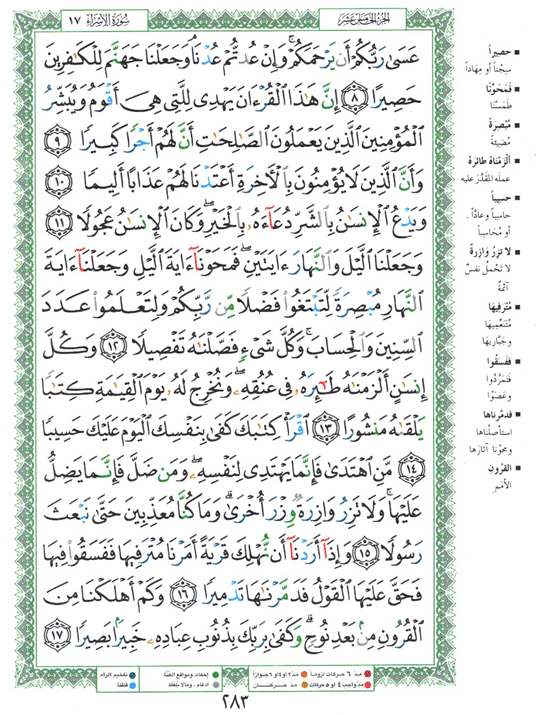 سُورَةُ الإِسْرَاء ١٧
الجزء الخامس عشر
عَسَىٰ رَبُّكُمْ أَن يَرْحَمَكُمْ ۚ وَإِنْ عُدتُّمْ عُدْنَا ۘ وَجَعَلْنَا جَهَنَّمَ لِلْكَافِرِينَ
حَصِيرًا ٨ إِنَّ هَٰذَا الْقُرْءَانَ يَهْدِى لِلَّتِى هِىَ أَقْوَمُ وَيُبَشِّرُ
الْمُؤْمِنِينَ الَّذِينَ يَعْمَلُونَ الصَّالِحَاتِ أَنَّ لَهُمْ أَجْرًا كَبِيرًا ٩
وَأَنَّ الَّذِينَ لَا يُؤْمِنُونَ بِالْآخِرَةِ أَعْتَدْنَا لَهُمْ عَذَابًا أَلِيمًا ١٠
وَيَدْعُ الْإِنسَانُ بِالشَّرِّ دُعَاءَهُ بِالْخَيْرِ ۖ وَكَانَ الْإِنسَانُ عَجُولًا ١١
وَجَعَلْنَا اللَّيْلَ وَالنَّهَارَ ءَايَتَيْنِ ۖ فَمَحَوْنَا ءَايَةَ اللَّيْلِ وَجَعَلْنَا ءَايَةَ
النَّهَارِ مُبْصِرَةً لِّتَبْتَغُوا فَضْلًا مِّن رَّبِّكُمْ وَلِتَعْلَمُوا عَدَدَ
السِّنِينَ وَالْحِسَابَ ۚ وَكُلَّ شَىْءٍ فَصَّلْنَاهُ تَفْصِيلًا ١٢ وَكُلَّ
إِنسَانٍ أَلْزَمْنَاهُ طَائِرَهُ فِى عُنُقِهِ ۖ وَنُخْرِجُ لَهُ يَوْمَ الْقِيَامَةِ كِتَابًا
يَلْقَاهُ مَنشُورًا ١٣ اقْرَأْ كِتَابَكَ كَفَىٰ بِنَفْسِكَ الْيَوْمَ عَلَيْكَ حَسِيبًا
١٤ مَّنِ اهْتَدَىٰ فَإِنَّمَا يَهْتَدِى لِنَفْسِهِ ۖ وَمَن ضَلَّ فَإِنَّمَا يَضِلُّ
عَلَيْهَا ۚ وَلَا تَزِرُ وَازِرَةٌ وِزْرَ أُخْرَىٰ ۗ وَمَا كُنَّا مُعَذِّبِينَ حَتَّىٰ نَبْعَثَ
رَسُولًا ١٥ وَإِذَا أَرَدْنَا أَن نُّهْلِكَ قَرْيَةً أَمَرْنَا مُتْرَفِيهَا فَفَسَقُوا فِيهَا
فَحَقَّ عَلَيْهَا الْقَوْلُ فَدَمَّرْنَاهَا تَدْمِيرًا ١٦ وَكَمْ أَهْلَكْنَا مِنَ
الْقُرُونِ مِن بَعْدِ نُوحٍ ۗ وَكَفَىٰ بِرَبِّكَ بِذُنُوبِ عِبَادِهِ خَبِيرًا بَصِيرًا ١٧
■ حَصِيراً
سِجْناً أو مِهَاداً
■ فَمَحَوْنَا
طَمَسْنَا
■ مُبْصِرَةً
مُضِيئةً
■ ألْزَمْنَاهُ طَائِرَهُ
عملَه المقدَّرَ عليه
■ حسيباً
حاسِباً وعادّاً .
أو مُحَاسِباً
■ لا تَزِرُ وَازِرَةٌ
لا تَحْمِلُ نفسٌ
آثمةٌ
■ مُتْرَفِيهَا
مُتَنَعِّمِيهَا
وجَبَّارِيهَا
■ فَفَسَقُوا
فتمرَّدُوا
وعَصَوْا
■ فدمَّرناها
استأصَلْنَاها
ومحَوْنا آثارَها
■ القُرُونِ
الأمَمِ
مدّ ٦ حركات لزوماً
مدّ ٢ أو ٤ أو ٦ جوازاً
إخفاء، ومواقع الغُنَّة
تفخيم الراء
مدّ واجب ٤ أو ٥ حركات
مدّ حركتان
ادغام ، وما لا يُلفَظ
قلقلة
٢٨٣